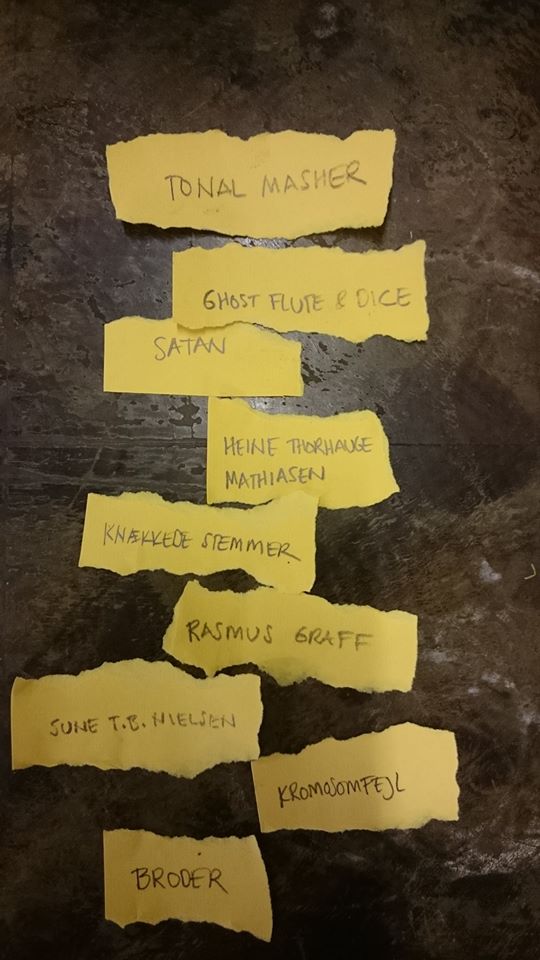 TONAL MASHER
GHOST FLUTE & DICE
SATAN
HEINE THORHAUGE
MATHIASEN
KNÆKKEDE STEMMER
RASMUS GRAFF
SUNE T.B. NIELSEN
KROMOSOMFEJL
BRODER